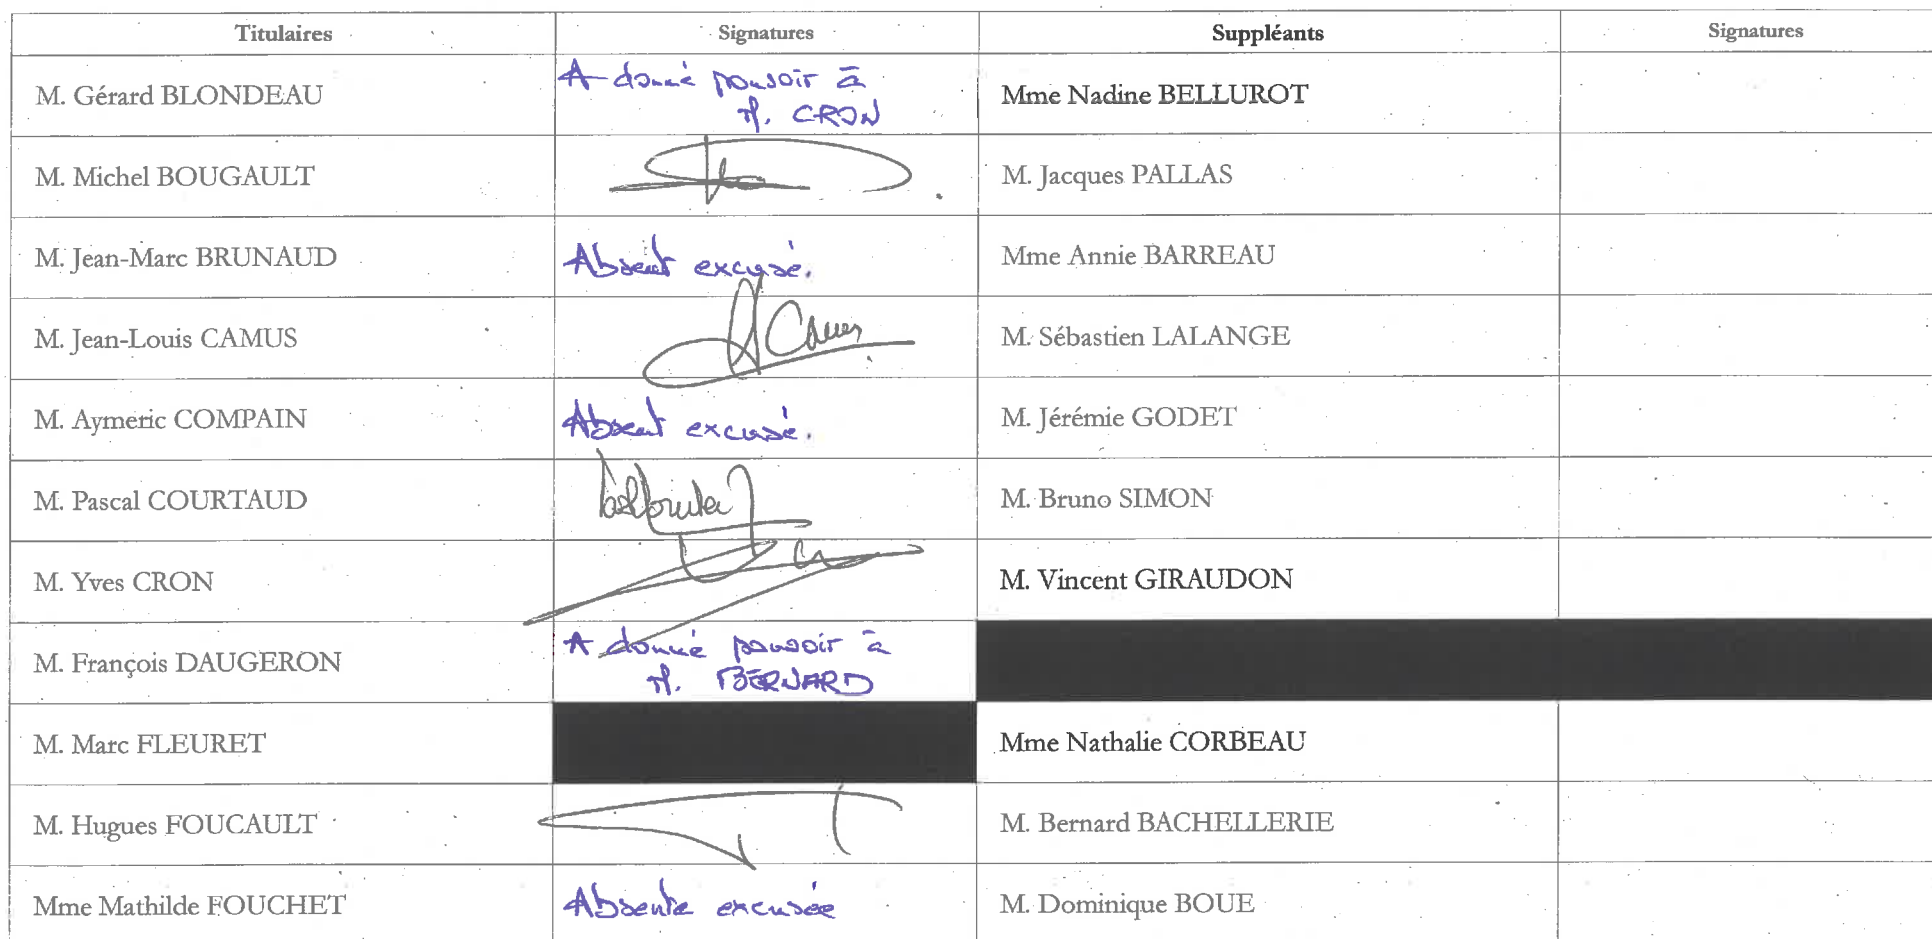 Titulaires Signatures Suppléants Signatures
M. Gérard BLONDEAU A donné pouvoir à M. CRON Mme Nadine BELLUROT
M. Michel BOUGAULT M. Jacques PALLAS
M. Jean-Marc BRUNAUD Absent excusé. Mme Annie BARREAU
M. Jean-Louis CAMUS Camus M. Sébastien LALANGE
M. Aymeric COMPAIN Absent excusé. M. Jérémie GODET
M. Pascal COURTAUD M. Bruno SIMON
M. Yves CRON M. Vincent GIRAUDON
M. François DAUGERON A donné pouvoir à M. BERNARD
M. Marc FLEURET Mme Nathalie CORBEAU
M. Hugues FOUCAULT M. Bernard BACHELLERIE
Mme Mathilde FOUCHET Absente excusée M. Dominique BOUE